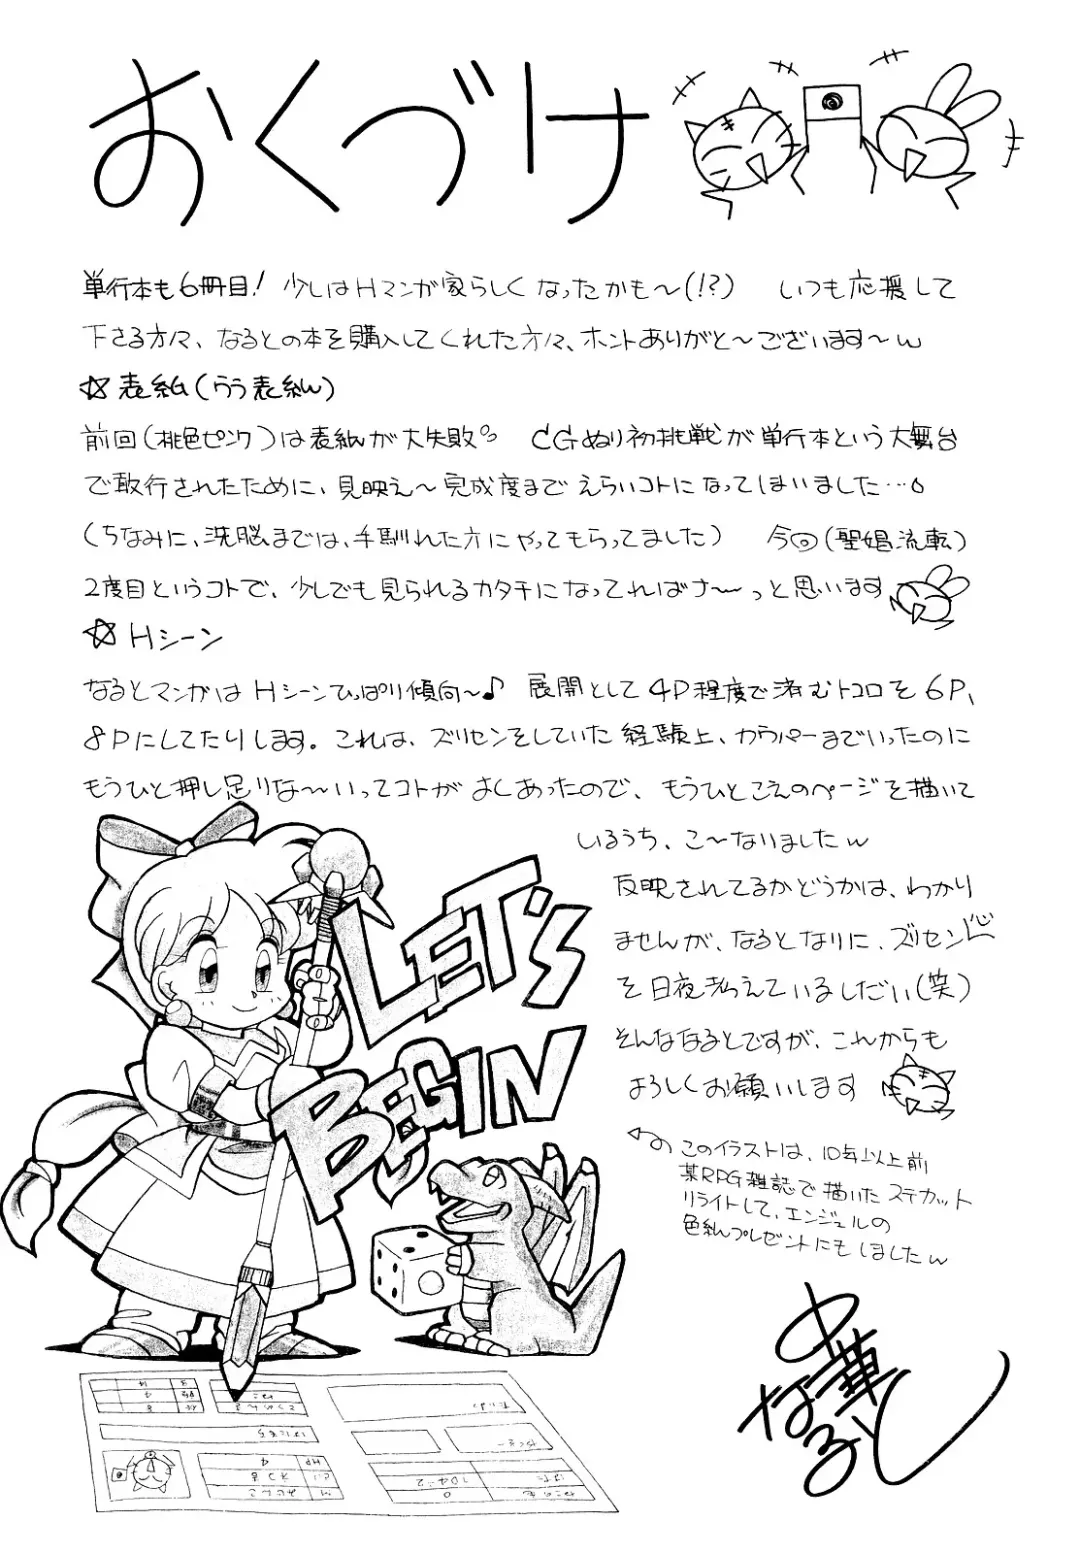 おくづけ
単行本も6冊目! 少しはHマンガ家らしくなったかも〜(!?) いつも応援して
下さる方々、なるとの本を購入してくれた方々、ホントありがと〜ございます〜w
☆表紙(うう表紙)
前回(桃色ピンク)は表紙が大失敗 CGぬり初挑戦が単行本という大舞台
で敢行されたために、見映え〜完成度までえらいコトになってしまいました…
(ちなみに、洗脳までは、手馴れた方にやってもらってました) 今回(聖娼流転)
2度目というコトで、少しでも見られるカタチになってればナ〜っと思います
☆Hシーン
なるとマンガはHシーンひっぱり傾向〜♪ 展開として4P程度で済むトコロを6P、
8Pにしてたりします。これは、ズリセンをしていた経験上、カラパーまでいったのに
もうひと押し足りな〜いってコトがよくあったので、もうひとこえのページを描いて
いるうち、こ〜なりましたw
反映されてるかどうかは、わかり
ませんが、なるとなりに、ズリセン
を日夜考えているしだい(笑)
そんななるとですが、これからも
よろしくお願いします
このイラストは、10年以上前
某RPG雑誌で描いたステカット
リライトして、エンジェルの
色紙プレゼントにもしましたw
LET'S
BEGIN
中華
なると